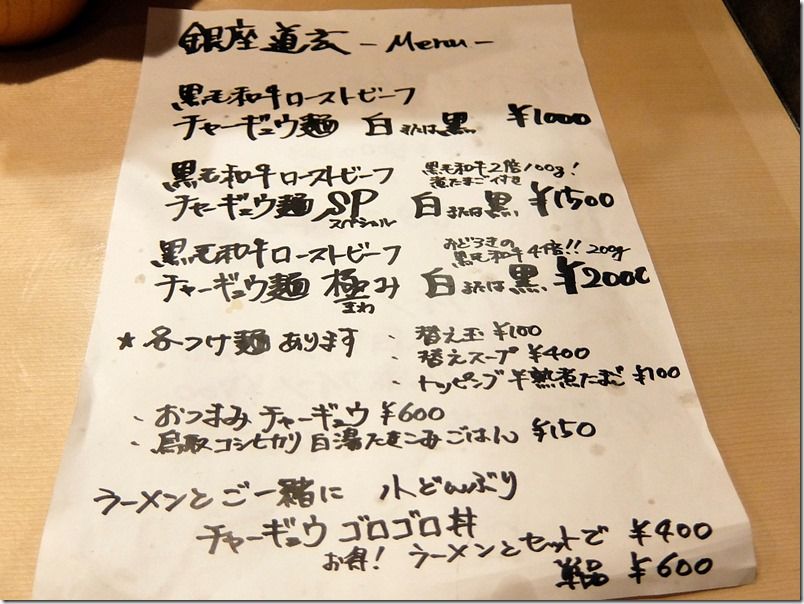 銀座 道玄 - Menu -
黒毛和牛ローストビーフ
チャーギュウ麺 白または黒 ¥1000
黒毛和牛ローストビーフ 黒毛和牛2倍100g!
煮たまご付き
チャーギュウ麺 SP 白または黒 ¥1500
スペシャル
黒毛和牛ローストビーフ おどろきの
黒毛和牛4倍!! 200g
チャーギュウ麺 極み 白または黒 ¥2000
きわ
★ 各つけ麺あります ・替え玉 ¥100
・替えスープ ¥400
・トッピング半熟煮たまご ¥100
・おつまみチャーギュウ ¥600
・鳥取コシヒカリ白湯たきこみごはん ¥150
ラーメンとご一緒に 小どんぶり
チャーギュウゴロゴロ丼
お得! ラーメンとセットで ¥400
単品 ¥600